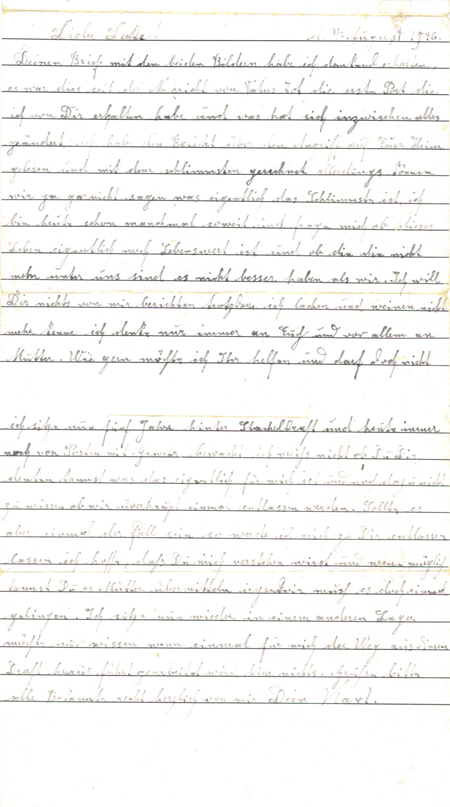 Liebe Lotte! August 1946.
Deinen Brief mit den beiden Bildern habe ich dankend erhalten,
es war dies seit der Nachricht von Vaters Tod die erste Post die
ich von Dir erhalten habe und was hat sich inzwischen alles
geändert. Ich hab den Bericht über den Angriff auf Euer Heim
gelesen und mit dem schlimmsten gerechnet allerdings können
wir ja gar nicht sagen was eigentlich das Schlimmste ist, ich
bin heute schon manchmal soweit und frage mich ob dieses
Leben eigentlich noch Lebenswert ist und ob die die nicht
mehr unter uns sind es nicht besser haben als wir. Ich will
Dir nichts von mir berichten trotzdem ich lachen und weinen nicht
mehr kenne ich denke nur immer an Euch und vor allem an
Mutter. Wie gern möchte ich Ihr helfen und darf doch nicht
ich sitze nun fünf Jahre hinter Stacheldraht und heute immer
noch von Posten mit bewacht, ich weiß nicht ob Du Dir
denken kannst was das eigentlich für mich ist und noch dazu nicht
zu wissen ob wir überhaupt einmal entlassen werden. Sollte es
aber einmal der Fall sein so werde ich mich zu Dir entlassen
lassen ich hoffe, daß Du mich verstehen wirst und wenn möglich
kannst Du es Mutter übermitteln irgendwie muß es doch einmal
gelingen. Ich sitze nun wieder in einem anderen Lager
möchte nur wissen wann einmal für mich der Weg aus diesem
Draht heraus führt gearbeitet wird hier nichts. Grüße bitte
alle Bekannte recht herzlich von mir Dein Karl.